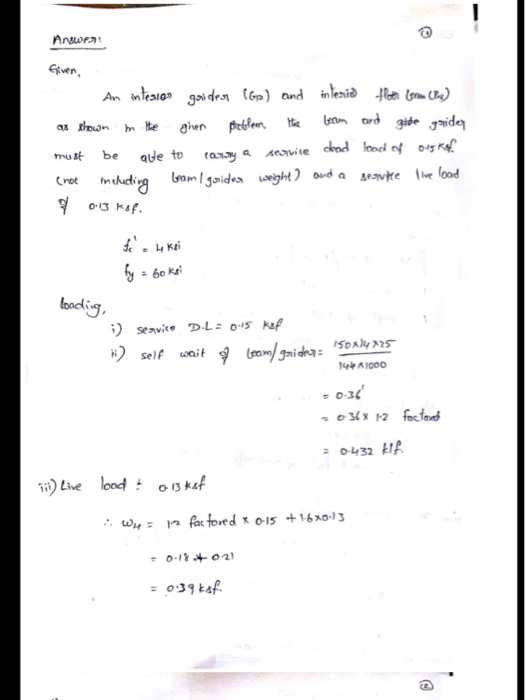 ①
Answer:
Given,
An interior goider (G2) and interio floor beam (B2)
as shown in the given problem. the beam and gide goider
must be able to carry a service dead load of 0.15 ksf.
(not including beam/goider weight) and a service live load
of 0.13 ksf.
fc' = 4 ksi
fy = 60 ksi
loading,
i) service D.L = 0.15 ksf
ii) self wait of beam/goider = 150×14×25
144×1000
= 0.36
= 0.36 × 1.2 factored
= 0.432 klf.
iii) Live load = 0.13 ksf
∴ w4 = 1.2 factored × 0.15 + 1.6×0.13
= 0.18 + 0.21
= 0.39 ksf.
②